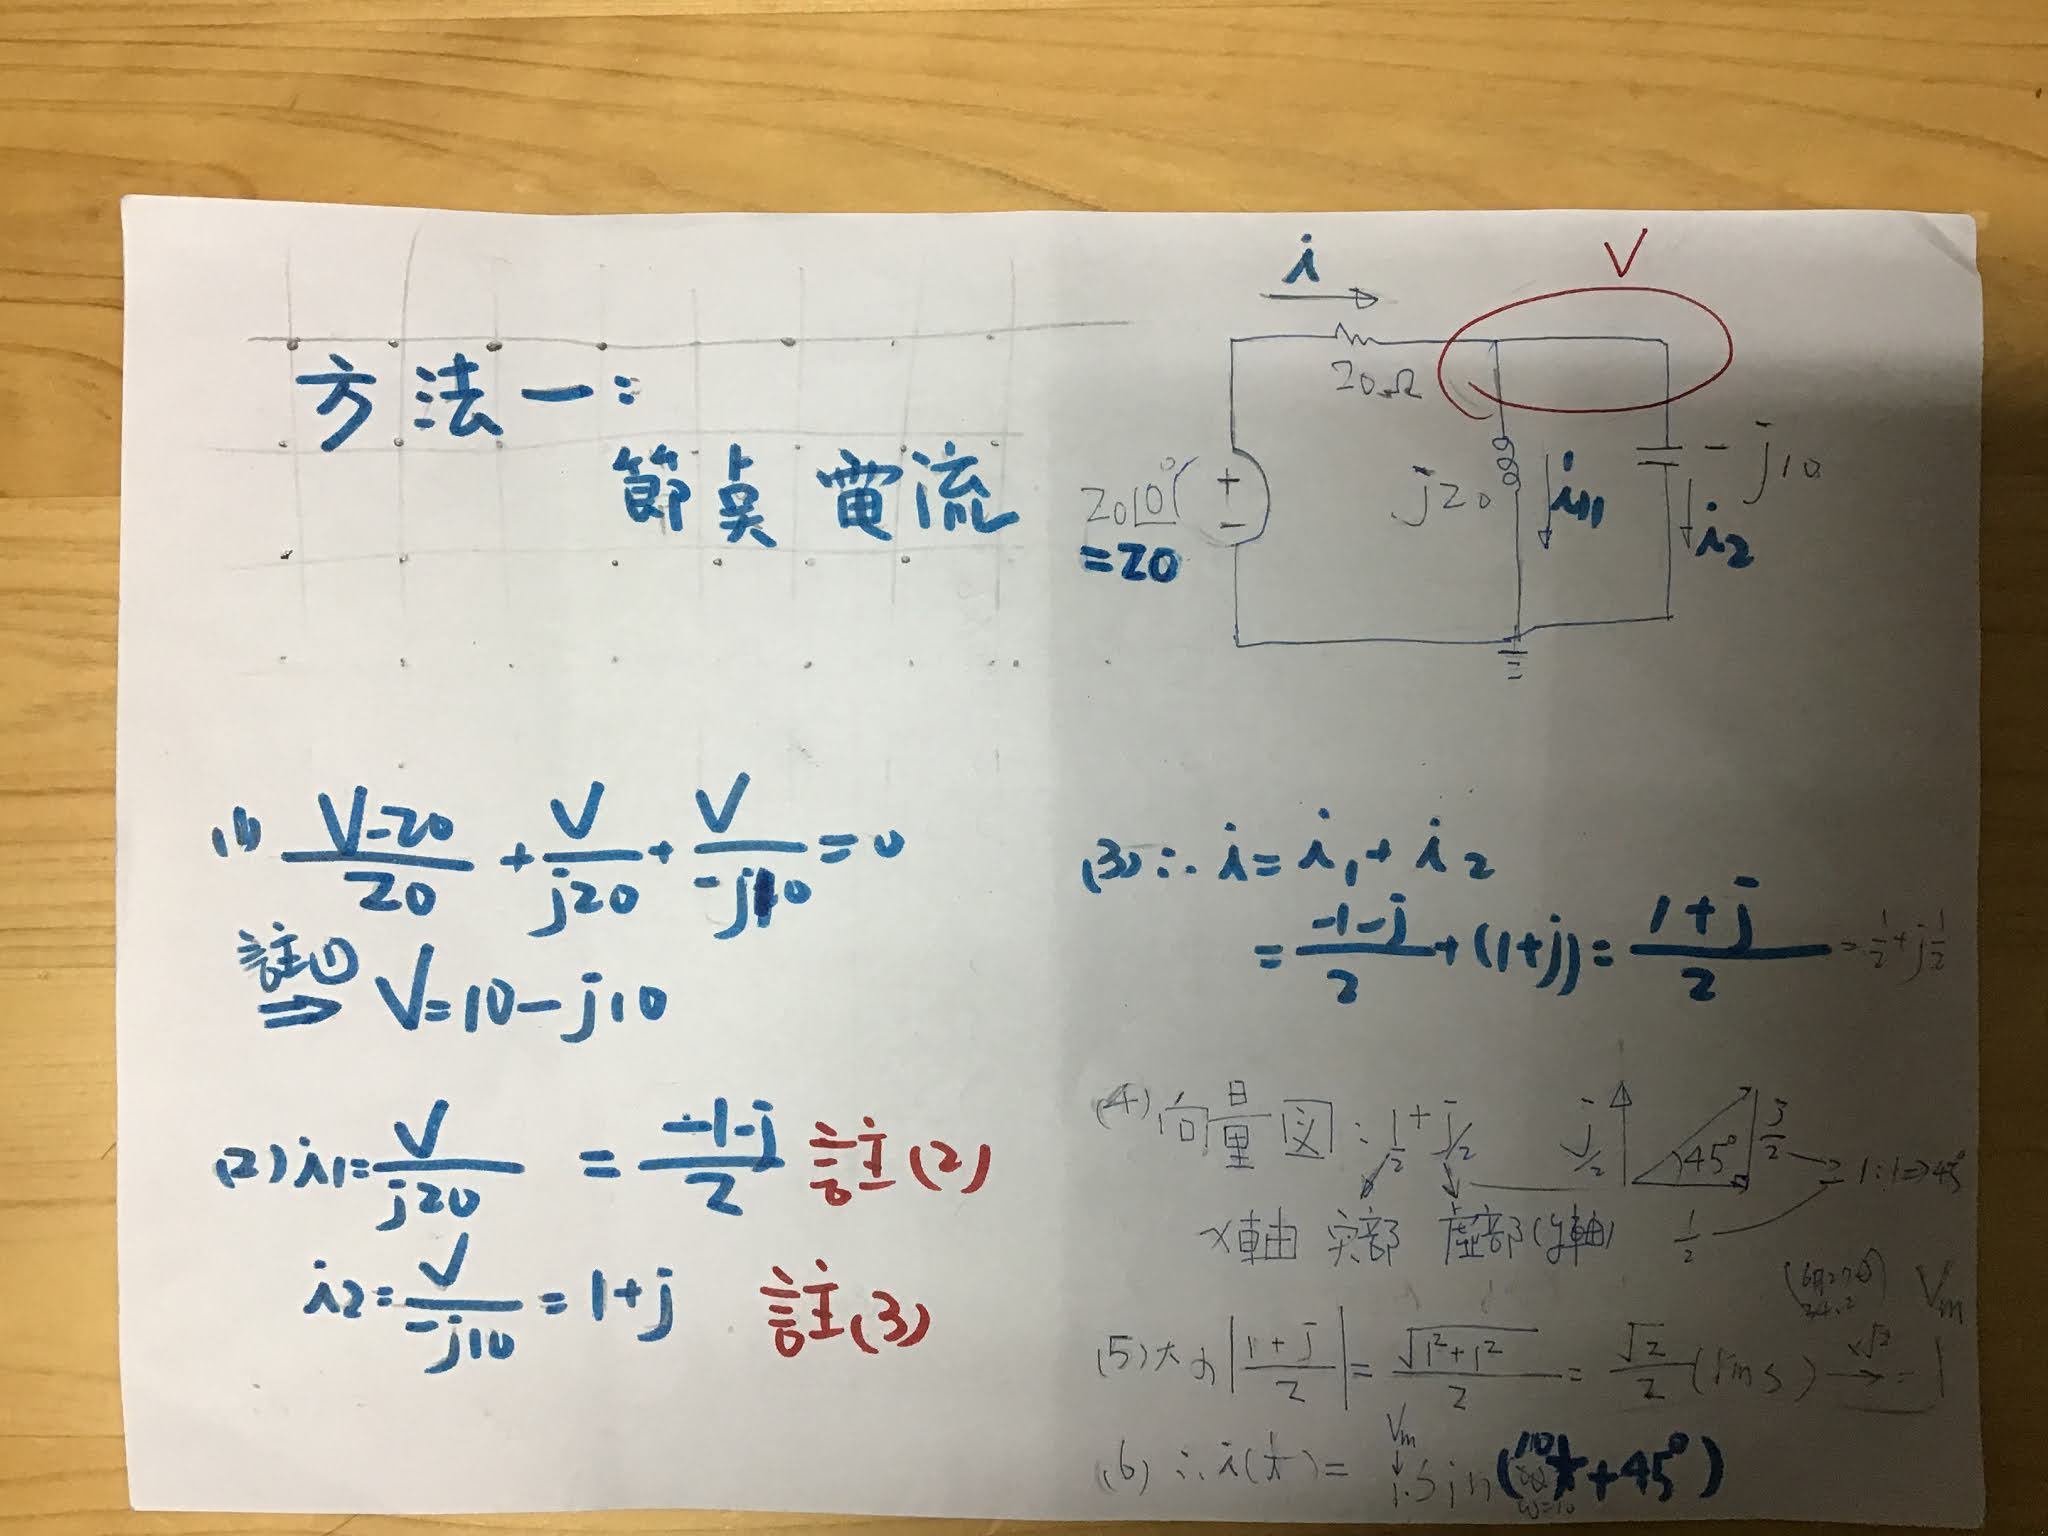 方法一:
節点電流
i
V
20Ω
20∠0°
=20
+
-
j20
i1
-j10
i2
(1) (V-20)/20 + V/j20 + V/-j10 = 0
註(1)
⇒ V=10-j10
(2) i1= V/j20 = (-1-j)/2 註(2)
i2= V/-j10 = 1+j 註(3)
(3) ∴ i= i1+ i2
= (-1-j)/2 + (1+j) = (1+j)/2 = 1/2+j1/2
(4) 向量図: 1/2 + j/2
j/2
45°
j/2
1:1⇒45°
1/2
x軸 実部 虛部(y軸)
Vm
(5) 大小 |(1+j)/2| = √(1²+1²)/2 = √2/2 (rms) ×√2 → 1
Vm
(6) ∴ i(t)= 1·sin(10t+45°)
ω=10